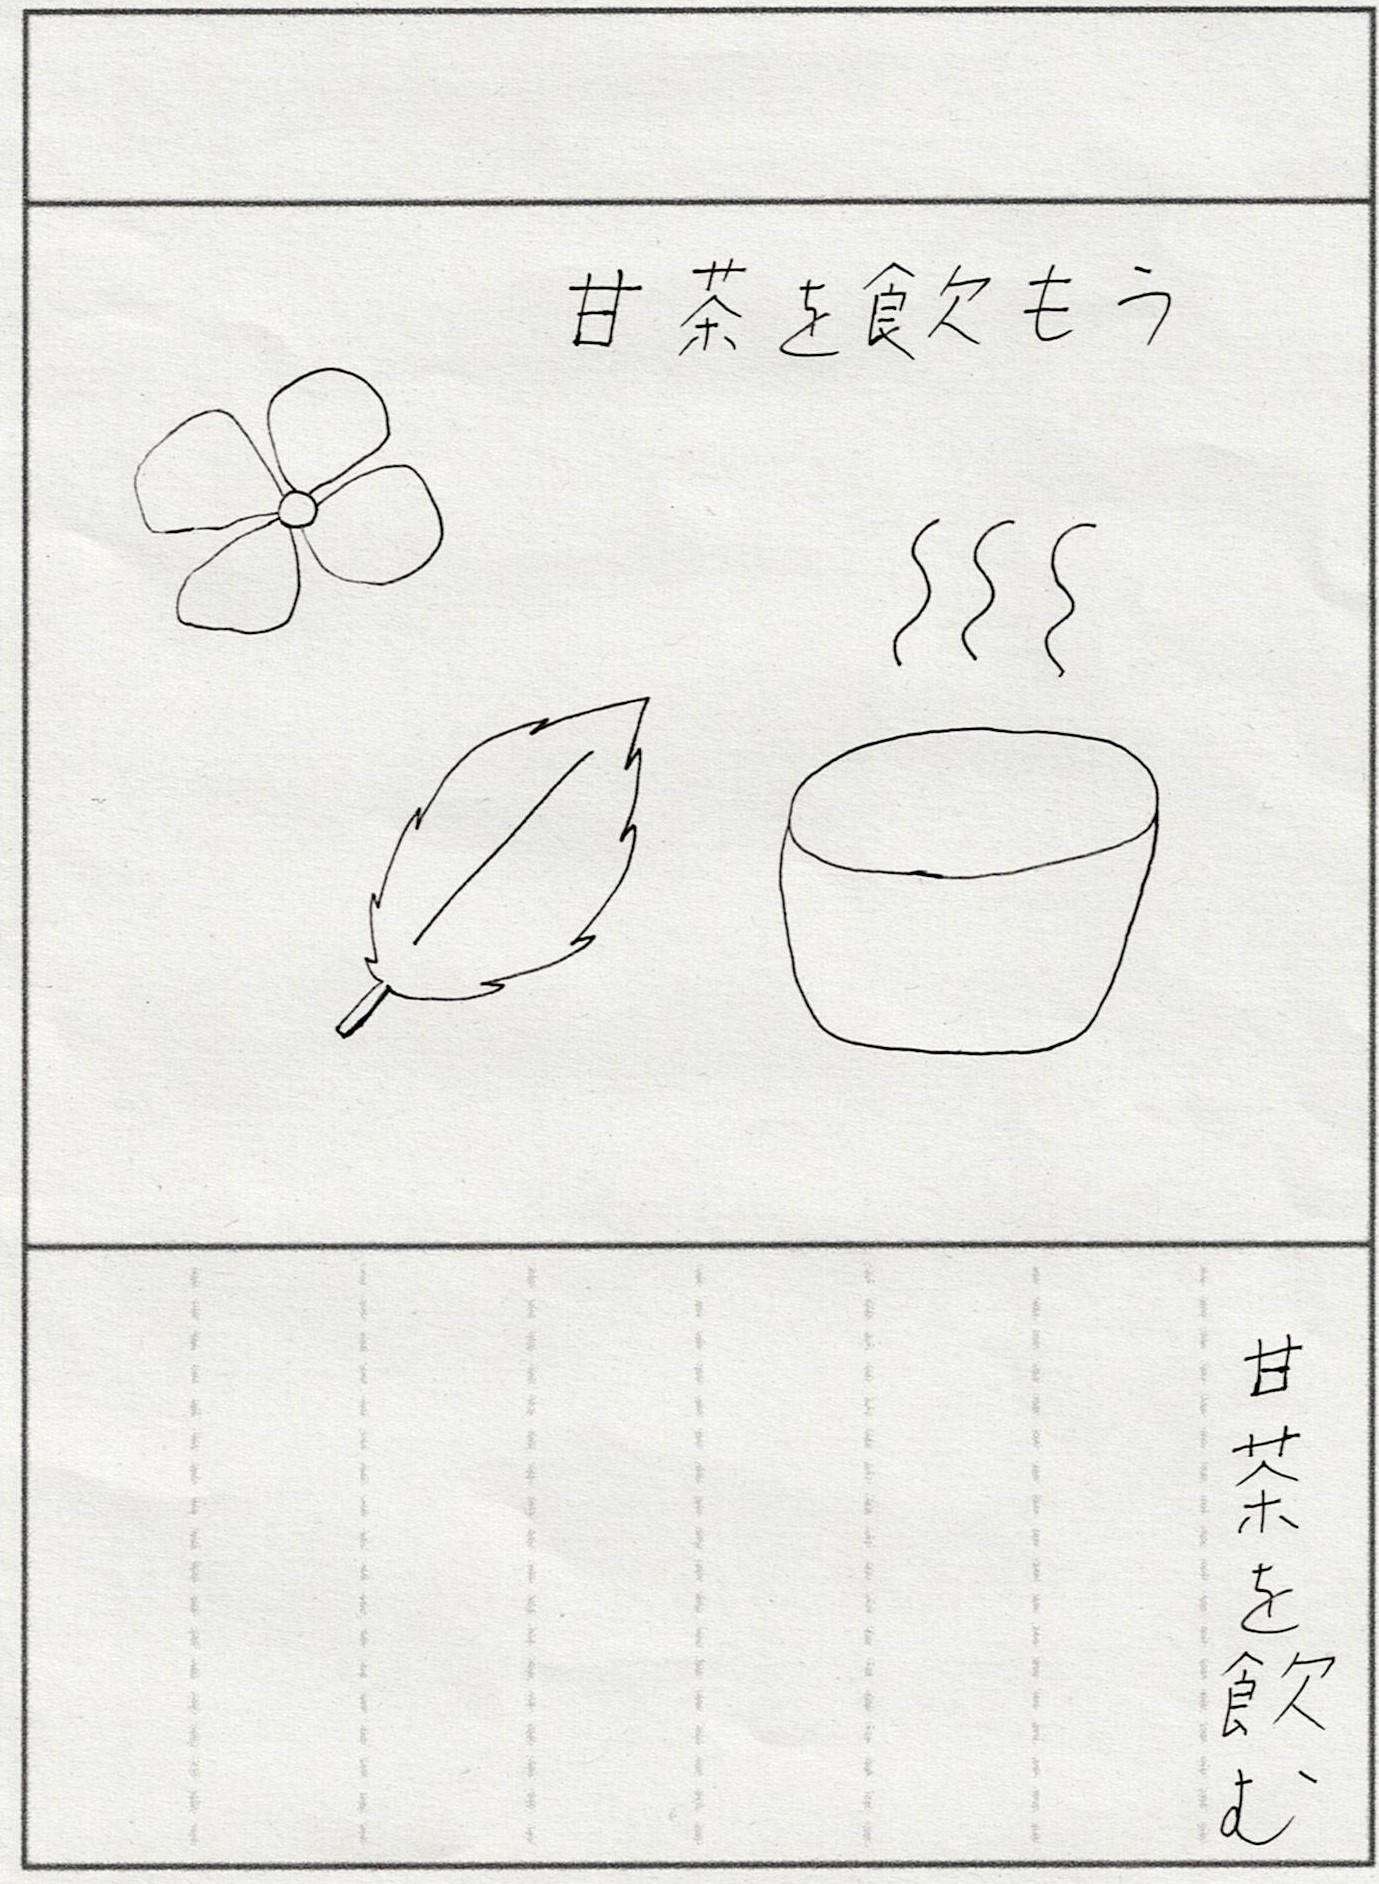 甘茶を飲もう
甘茶を飲む